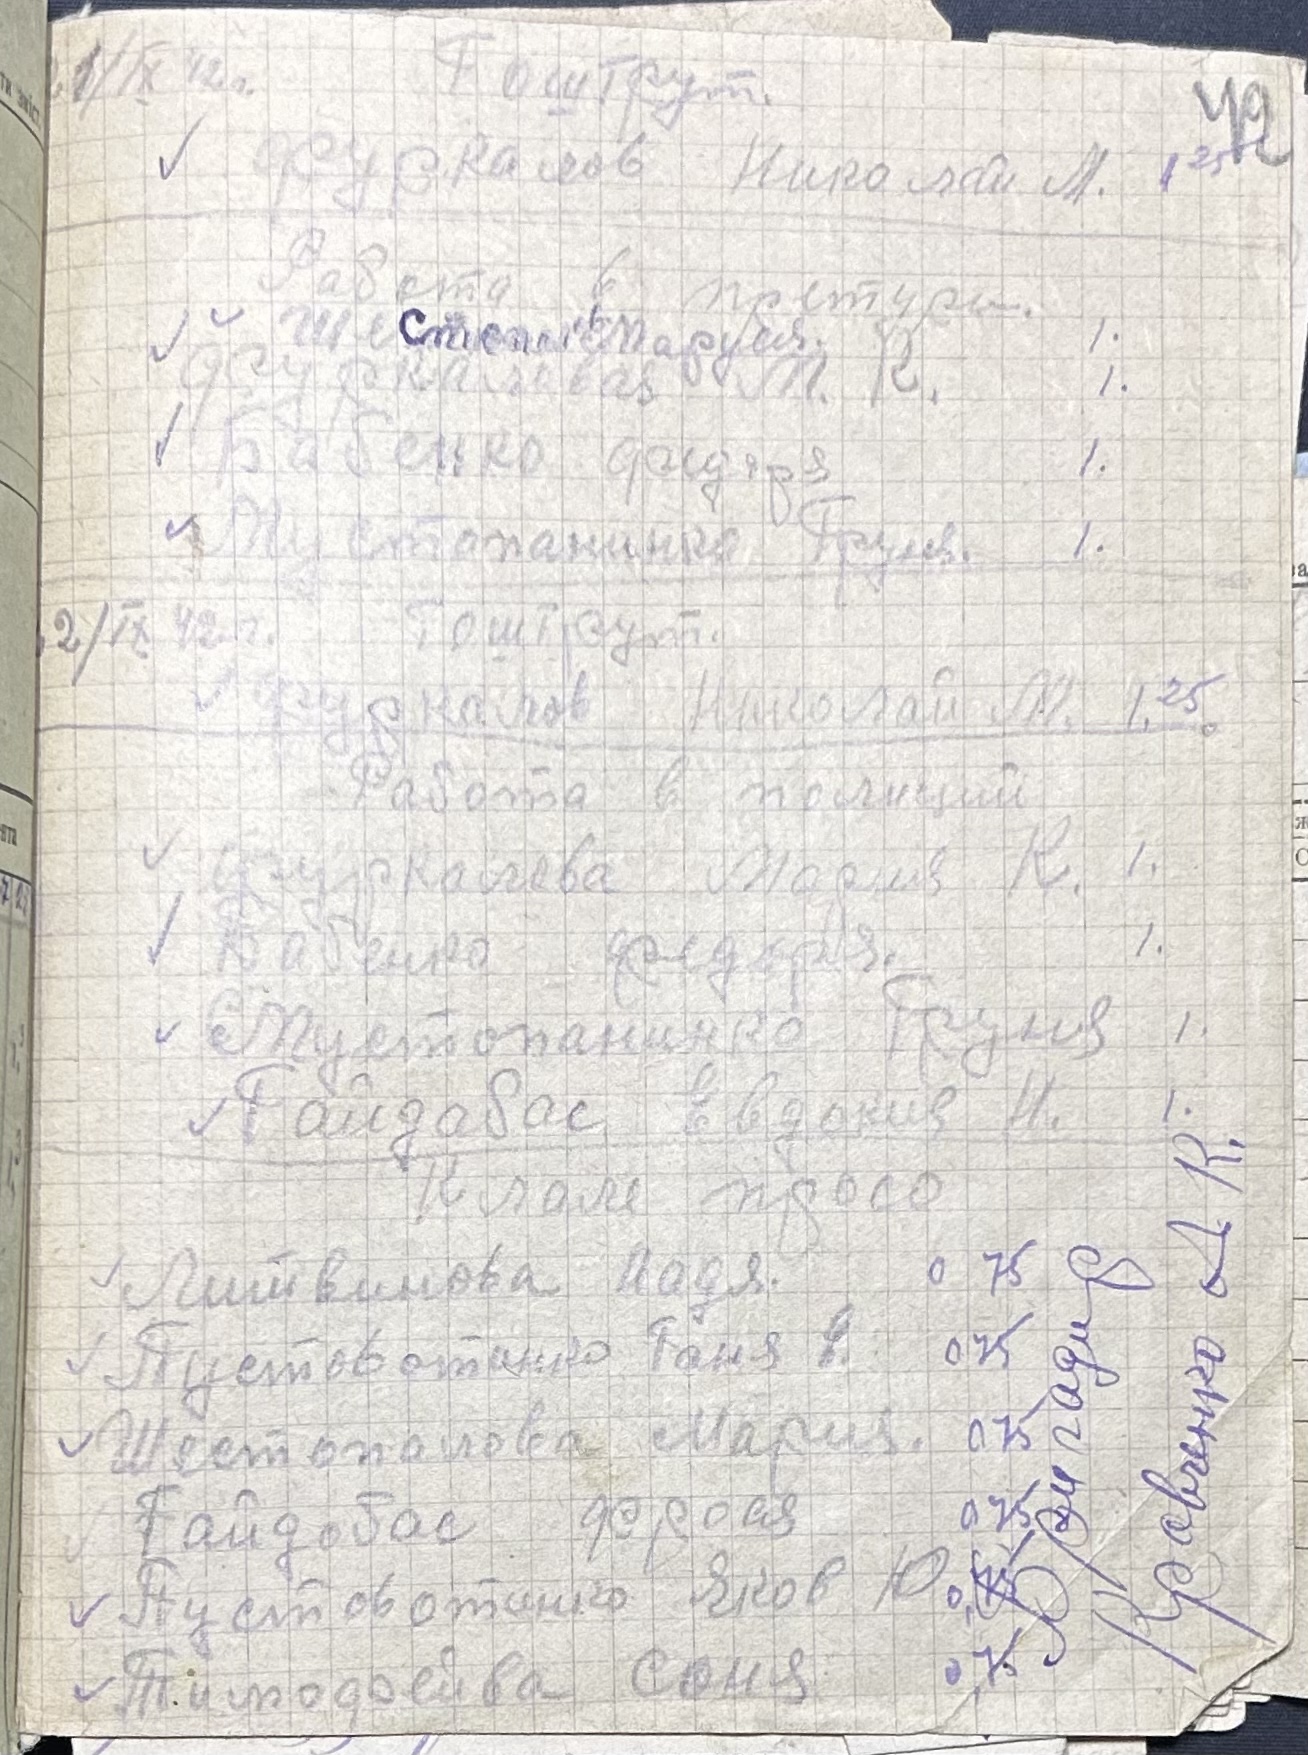 1/IX 42 г. Гоштрут.
42
Фуркалов Николай М. 1 25
Работа в претури.
Шестопал Маруся. 1.
Фуркалова М. К. 1.
Бабенко Федоря 1.
Груня. 1.
2/IX 42 г. Гоштрут.
Фуркалов Николай М. 1.25
Работа в полиций
Фуркалева Мария К. 1.
Бабенко Федоря. 1.
Груня 1.
Гайдабас Евдокия Н. 1.
Клали просо
Литвинова Надя. 0 75
Пустовотинко Таня В. 0 75
Шестопалова Мария. 0 75
Гайдобас Фрося 0 75
Пустовотинко Яков Ю. 0,75
Тимофеива Соня 0 75
Бригадир
Кравченко А К.